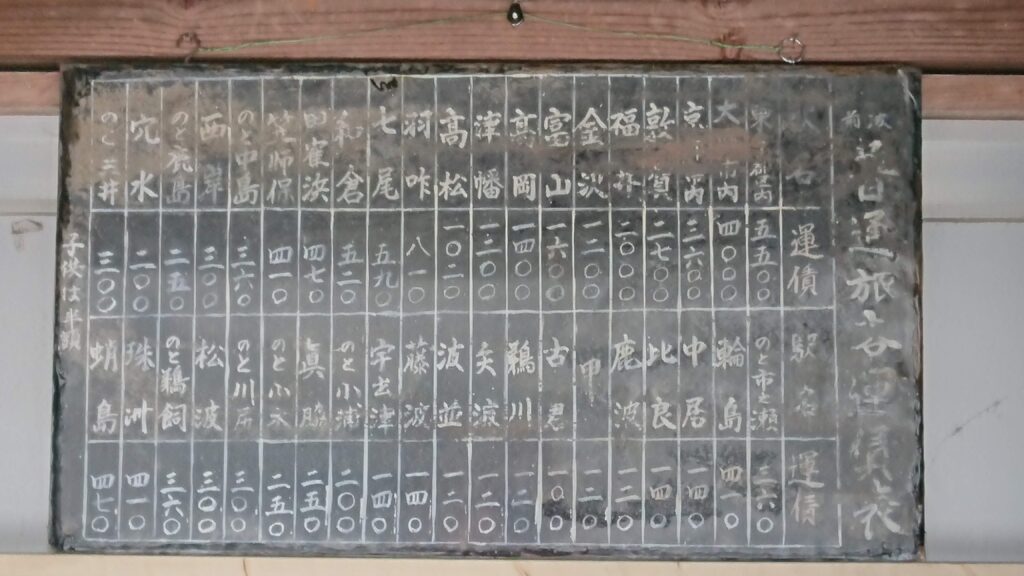 普通旅客運賃表
駅名 運賃 駅名 運賃
五五〇〇 のと市之瀬 三六〇
大 市内 四〇〇〇 輪島 四一〇
京 市内 三六〇〇 中居 一四〇
敦賀 二七〇〇 比良 一四〇
福井 二〇〇〇 鹿波 一二〇
金沢 一二〇〇 甲 一二〇
富山 一六〇〇 古君 一〇〇
高岡 一四〇〇 鵜川 一二〇
津幡 一二〇〇 矢波 一二〇
高松 一〇二〇 波並 一二〇
羽咋 八一〇 藤波 一四〇
七尾 五九〇 宇出津 一四〇
和倉 五二〇 のと小浦 二〇〇
田隺浜 四七〇 眞脇 二五〇
笠師保 四一〇 のと小木 二五〇
のと中島 三六〇 のと川尻 三〇〇
西岸 三〇〇 松波 三〇〇
のと鹿島 二五〇 のと鵜飼 三六〇
穴水 二〇〇 珠洲 四一〇
のと三井 三〇〇 蛸島 四七〇
子供は半額